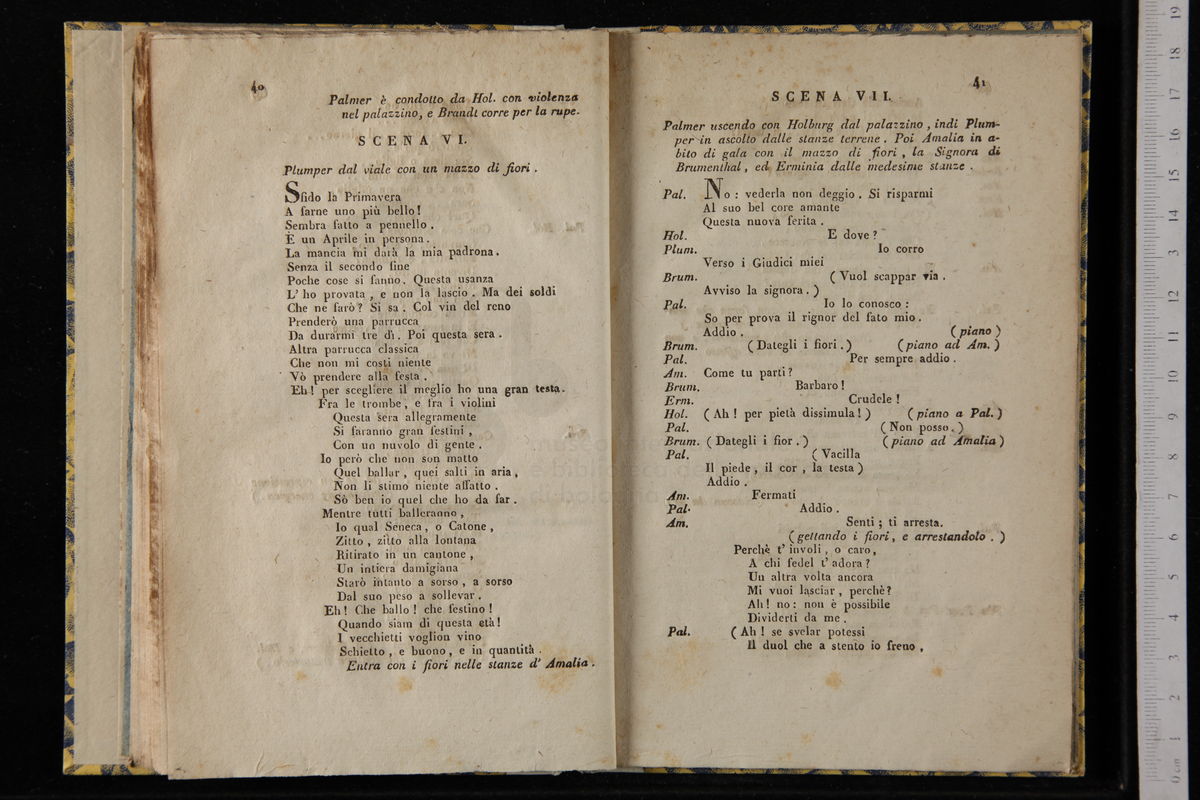 40
Palmer è condotto da Hol. con violenza
nel palazzino, e Brandt corre per la rupe.
SCENA VI.
Plumper dal viale con un mazzo di fiori.
Sfido la Primavera
A farne uno più bello!
Sembra fatto a pennello.
È un Aprile in persona.
La mancia mi darà la mia padrona.
Senza il secondo fine
Poche cose si fanno. Questa usanza
L' ho provata, e non la lascio. Ma dei soldi
Che ne farò? Si sa. Col vin del reno
Prenderò una parrucca
Da durarmi tre dì. Poi questa sera.
Altra parrucca classica
Che non mi costi niente
Vò prendere alla festa.
Eh! per scegliere il meglio ho una gran testa.
Fra le trombe, e fra i violini
Questa sera allegramente
Si faranno gran festini,
Con un nuvolo di gente.
Io però che non son matto
Quel ballar, quei salti in aria,
Non li stimo niente affatto.
Sò ben io quel che ho da far.
Mentre tutti balleranno,
Io qual Seneca, o Catone,
Zitto, zitto alla lontana
Ritirato in un cantone,
Un intiera damigiana
Starò intanto a sorso, a sorso
Dal suo peso a sollevar.
Eh! Che ballo! che festino!
Quando siam di questa età!
I vecchietti voglion vino
Schietto, e buono, e in quantità.
Entra con i fiori nelle stanze d' Amalia.
41
SCENA VII.
Palmer uscendo con Holburg dal palazzino, indi Plum-
per in ascolto dalle stanze terrene. Poi Amalia in a-
bito di gala con il mazzo di fiori, la Signora di
Brumenthal, ed Erminia dalle medesime stanze.
Pal. No: vederla non deggio. Si risparmi
Al suo bel core amante
Questa nuova ferita.
Hol. E dove?
Plum. Io corro
Verso i Giudici miei
Brum. (Vuol scappar via.
Avviso la signora.)
Pal. Io lo conosco:
So per prova il rignor del fato mio.
Addio. (piano)
Brum. (Dategli i fiori.) (piano ad Am.)
Pal. Per sempre addio.
Am. Come tu parti?
Brum. Barbaro!
Erm. Crudele!
Hol. (Ah! per pietà dissimula!) (piano a Pal.)
Pal. (Non posso.)
Brum. (Dategli i fior.) (piano ad Amalia)
Pal. (Vacilla
Il piede, il cor, la testa)
Addio.
Am. Fermati
Pal. Addio.
Am. Senti; ti arresta.
(gettando i fiori, e arrestandolo.)
Perchè t' involi, o caro,
A chi fedel t' adora?
Un altra volta ancora
Mi vuoi lasciar, perchè?
Ah! no: non è possibile
Dividerti da me.
Pal. (Ah! se svelar potessi
Il duol che a stento io freno,